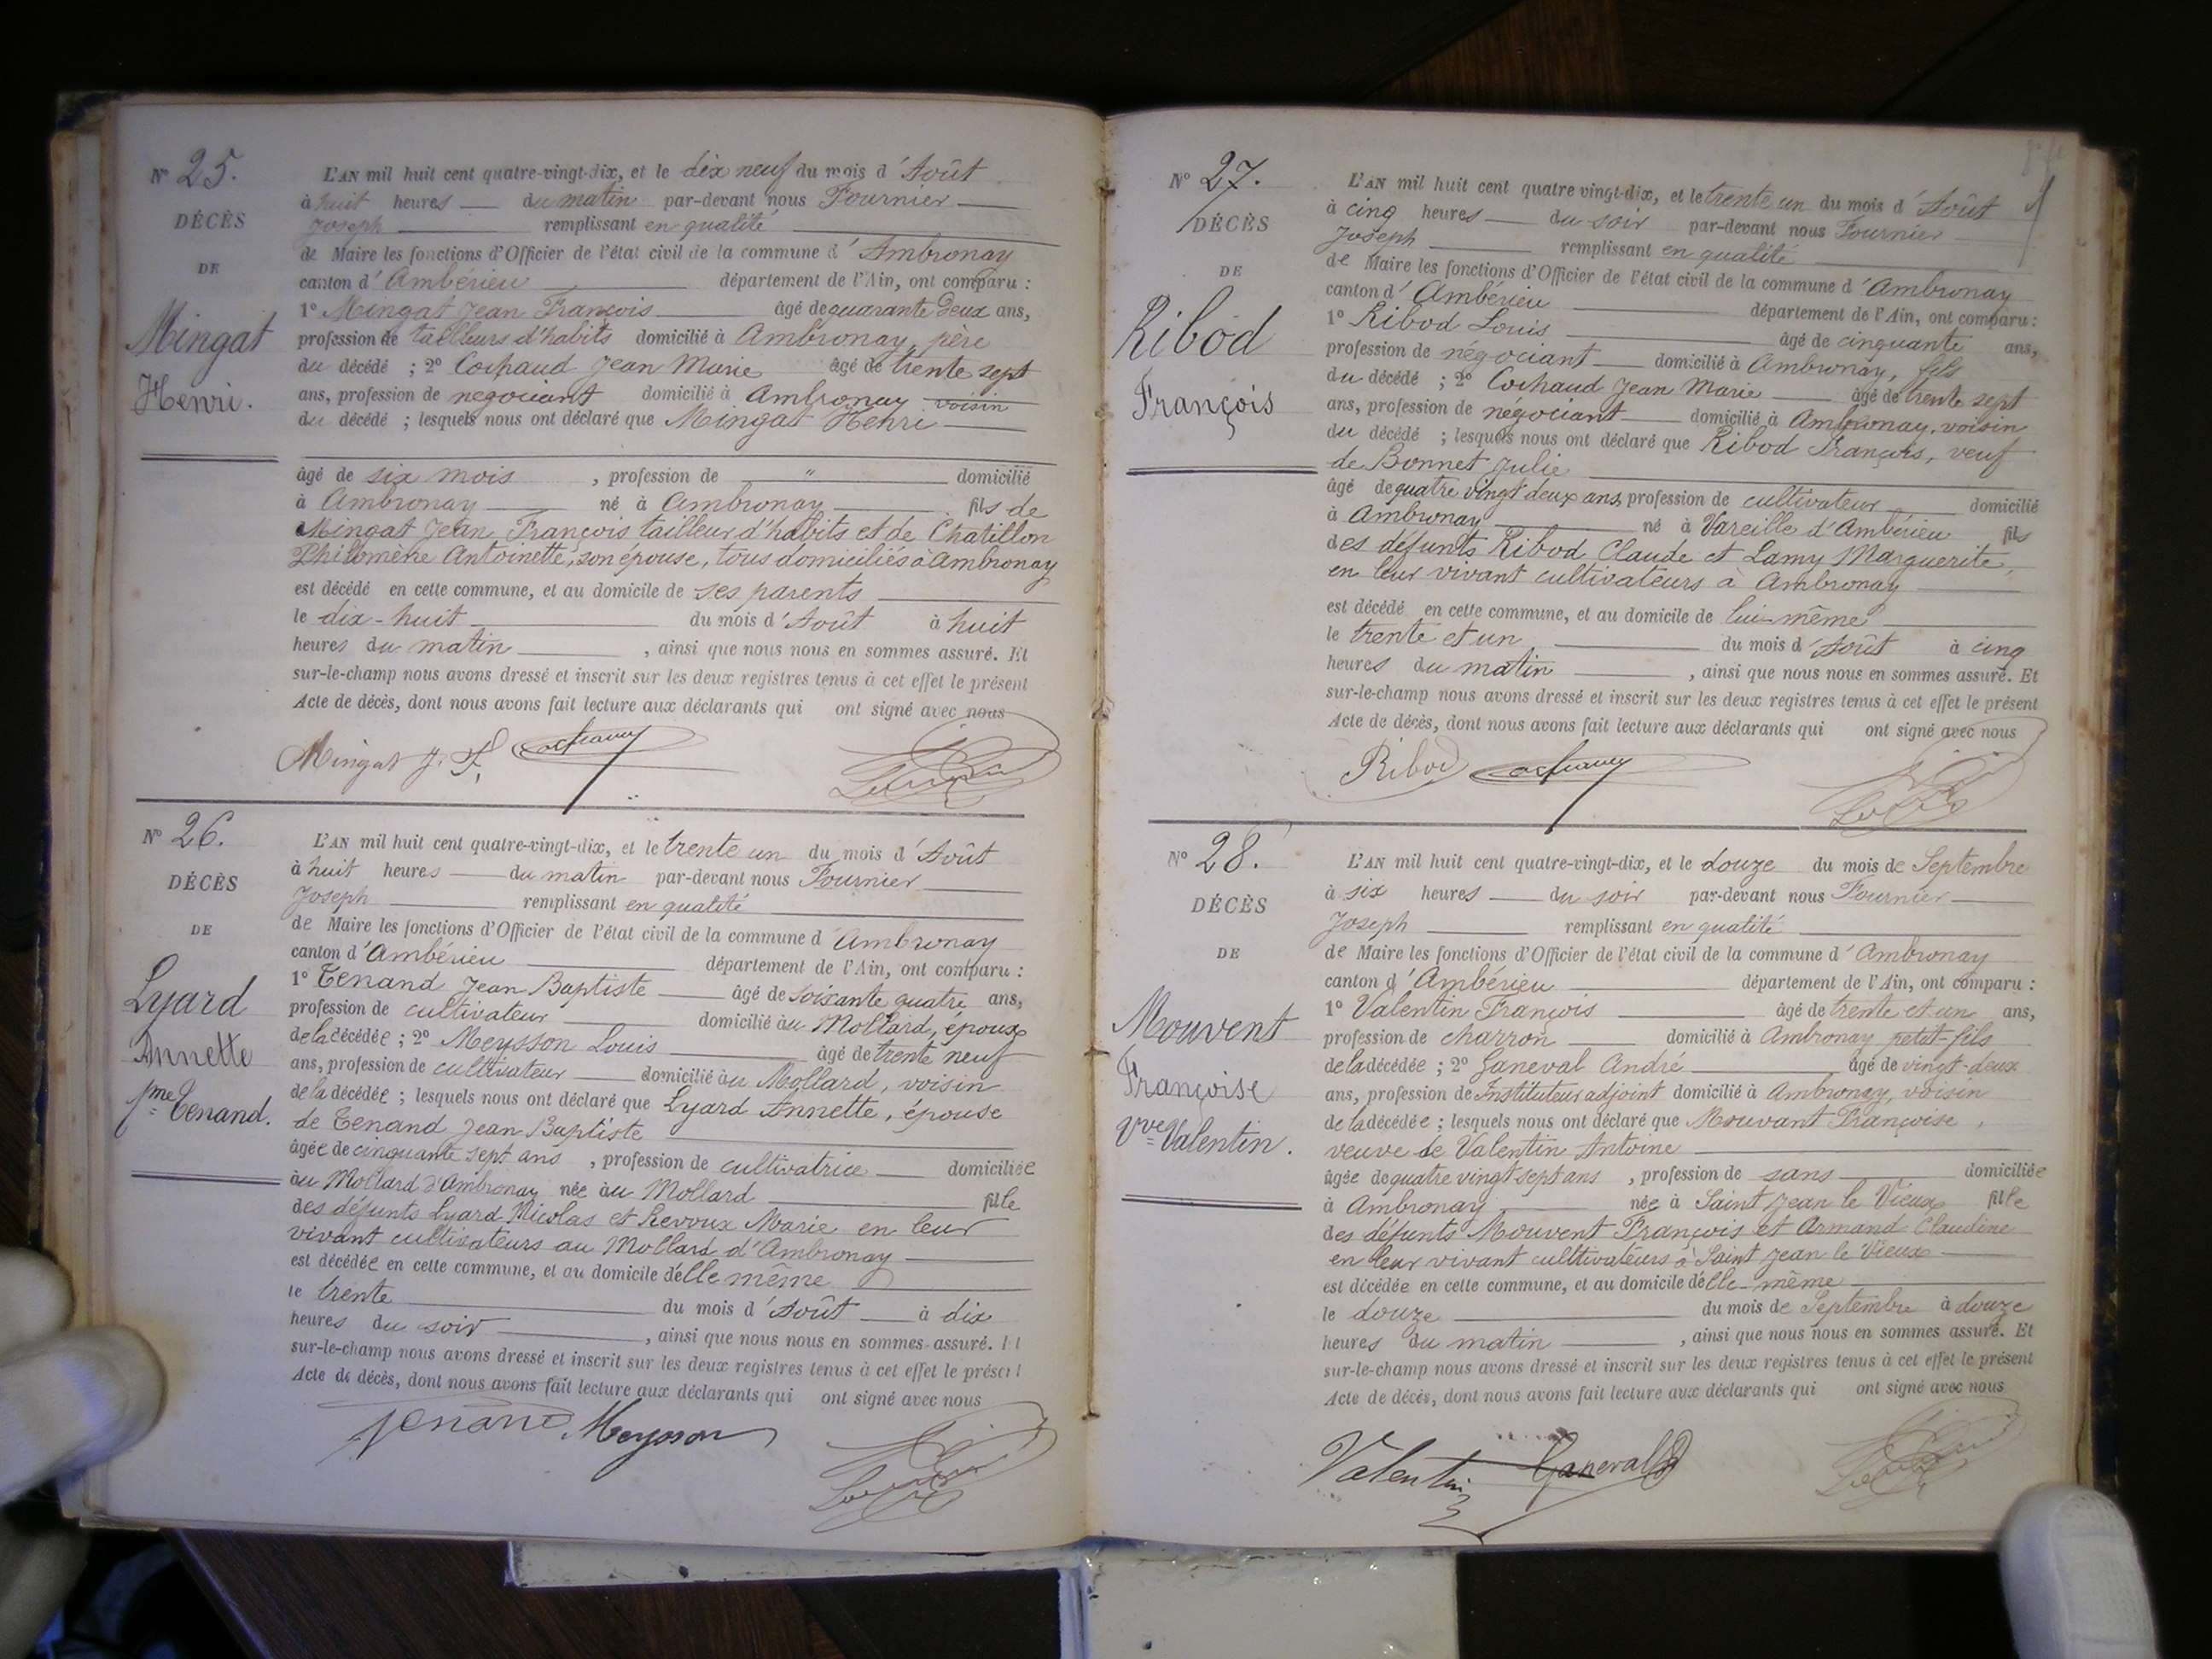 N° 25.
DÉCÈS
DE
Mingat
Henri.
L'AN mil huit cent quatre-vingt-dix, et le dix neuf du mois d'Août
à huit heures du matin par-devant nous Fournier
Joseph remplissant en qualité
de Maire les fonctions d'Officier de l'état civil de la commune d'Ambronay
canton d'Ambérieu département de l'Ain, ont comparu :
1° Mingat Jean François âgé de quarante deux ans,
profession de tailleurs d'habits domicilié à Ambronay, père
du décédé ; 2° Cochaud Jean Marie âgé de trente sept
ans, profession de négociant domicilié à Ambronay voisin
du décédé ; lesquels nous ont déclaré que Mingat Henri
âgé de six mois , profession de " domicilié
à Ambronay né à Ambronay fils de
Mingat Jean François tailleur d'habits et de Chatillon
Philomène Antoinette, son épouse, tous domiciliés à Ambronay
est décédé en cette commune, et au domicile de ses parents
le dix-huit du mois d'Août à huit
heures du matin , ainsi que nous nous en sommes assuré. Et
sur-le-champ nous avons dressé et inscrit sur les deux registres tenus à cet effet le présent
Acte de décès, dont nous avons fait lecture aux déclarants qui ont signé avec nous
Mingat J. F. Cochaud
N° 26.
DÉCÈS
DE
Lyard
Annette
fme Tenand.
L'AN mil huit cent quatre-vingt-dix, et le trente un du mois d'Août
à huit heures du matin par-devant nous Fournier
Joseph remplissant en qualité
de Maire les fonctions d'Officier de l'état civil de la commune d'Ambronay
canton d'Ambérieu département de l'Ain, ont comparu :
1° Tenand Jean Baptiste âgé de soixante quatre ans,
profession de cultivateur domicilié au Mollard, époux
de la décédée ; 2° Meysson Louis âgé de trente neuf
ans, profession de cultivateur domicilié au Mollard, voisin
de la décédée ; lesquels nous ont déclaré que Lyard Annette, épouse
de Tenand Jean Baptiste
âgée de cinquante sept ans , profession de cultivatrice domiciliée
au Mollard d'Ambronay née au Mollard fille
des défunts Lyard Nicolas et Revoux Marie en leur
vivant cultivateurs au Mollard d'Ambronay
est décédée en cette commune, et au domicile d'elle même
le trente du mois d'Août à dix
heures du soir , ainsi que nous nous en sommes assuré. Et
sur-le-champ nous avons dressé et inscrit sur les deux registres tenus à cet effet le présent
Acte de décès, dont nous avons fait lecture aux déclarants qui ont signé avec nous
Tenand. Meysson
N° 27.
DÉCÈS
DE
Ribod
François
L'AN mil huit cent quatre vingt-dix, et le trente un du mois d'Août
à cinq heures du soir par-devant nous Fournier
Joseph remplissant en qualité
de Maire les fonctions d'Officier de l'état civil de la commune d'Ambronay
canton d'Ambérieu département de l'Ain, ont comparu :
1° Ribod Louis âgé de cinquante ans,
profession de négociant domicilié à Ambronay, fils
du décédé ; 2° Cochaud Jean Marie âgé de trente sept
ans, profession de négociant domicilié à Ambronay, voisin
du décédé ; lesquels nous ont déclaré que Ribod François, veuf
de Bonnet Julie
âgé de quatre vingt deux ans, profession de cultivateur domicilié
à Ambronay né à Vareille d'Ambérieu fils
des défunts Ribod Claude et Lamy Marguerite,
en leur vivant cultivateurs à Ambronay
est décédé en cette commune, et au domicile de lui-même
le trente et un du mois d'Août à cinq
heures du matin , ainsi que nous nous en sommes assuré. Et
sur-le-champ nous avons dressé et inscrit sur les deux registres tenus à cet effet le présent
Acte de décès, dont nous avons fait lecture aux déclarants qui ont signé avec nous
Ribod Cochaud
N° 28.
DÉCÈS
DE
Mouvent
Françoise
Vve Valentin.
L'AN mil huit cent quatre-vingt-dix, et le douze du mois de Septembre
à six heures du soir par-devant nous Fournier
Joseph remplissant en qualité
de Maire les fonctions d'Officier de l'état civil de la commune d'Ambronay
canton d'Ambérieu département de l'Ain, ont comparu :
1° Valentin François âgé de trente et un ans,
profession de charron domicilié à Ambronay petit-fils
de la décédée ; 2° Ganeval André âgé de vingt-deux
ans, profession de Instituteur adjoint domicilié à Ambronay, voisin
de la décédée ; lesquels nous ont déclaré que Mouvant Françoise,
veuve de Valentin Antoine
âgée de quatre vingt-sept ans , profession de sans domiciliée
à Ambronay née à Saint Jean le Vieux fille
des défunts Mouvent François et Armand Claudine
en leur vivant cultivateurs à Saint Jean le Vieux
est décédée en cette commune, et au domicile d'elle-même
le douze du mois de Septembre à douze
heures du matin , ainsi que nous nous en sommes assuré. Et
sur-le-champ nous avons dressé et inscrit sur les deux registres tenus à cet effet le présent
Acte de décès, dont nous avons fait lecture aux déclarants qui ont signé avec nous
Valentin Ganeval